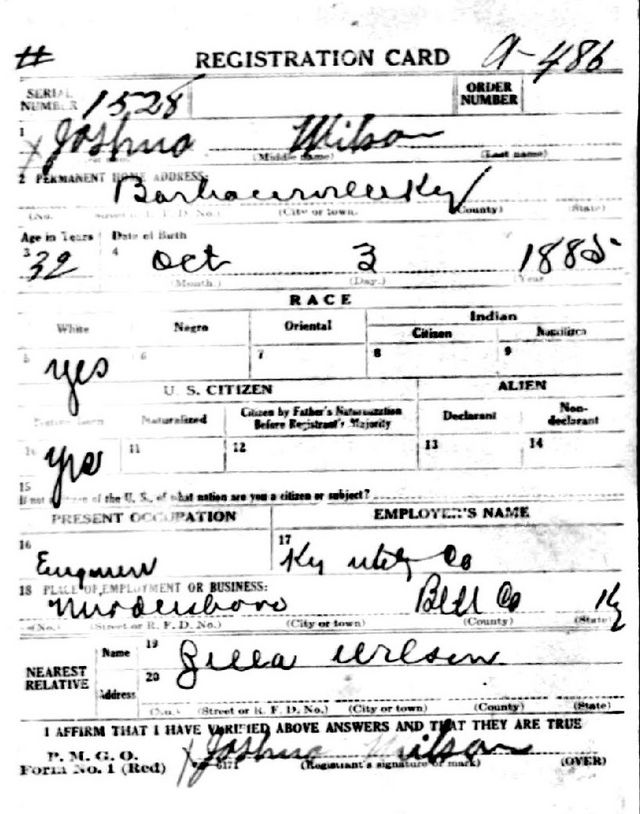 # REGISTRATION CARD A-486
SERIAL NUMBER 1528 ORDER NUMBER
1 X Joshua Wilson
(Middle name) (Last name)
2 PERMANENT HOME ADDRESS:
Ky
(No.) (Street or R. F. D. No.) (City or town) (County) (State)
Age in Years Date of Birth
3 32 4 Oct 3 1885
(Month.) (Day.) (Year
RACE
White Negro Oriental Indian
Citizen Noncitizen
5 yes 6 7 8 9
U. S. CITIZEN ALIEN
Native Born Naturalized Citizen by Father's Naturalization Before Registrant's Majority Declarant Non-declarant
10 yes 11 12 13 14
15
If not a citizen of the U. S., of what nation are you a citizen or subject?
PRESENT OCCUPATION EMPLOYER'S NAME
16 17 Ky Co
18 PLACE OF EMPLOYMENT OR BUSINESS:
Bell Co Ky
(No.) (Street or R. F. D. No.) (City or town) (County) (State)
NEAREST RELATIVE
Name 19 Wilson
Address 20
(No.) (Street or R. F. D. No.) (City or town) (County) (State)
I AFFIRM THAT I HAVE VERIFIED ABOVE ANSWERS AND THAT THEY ARE TRUE
P. M. G. O.
Form No. 1 (Red) X Joshua Wilson
(Registrant's signature or mark) (OVER)